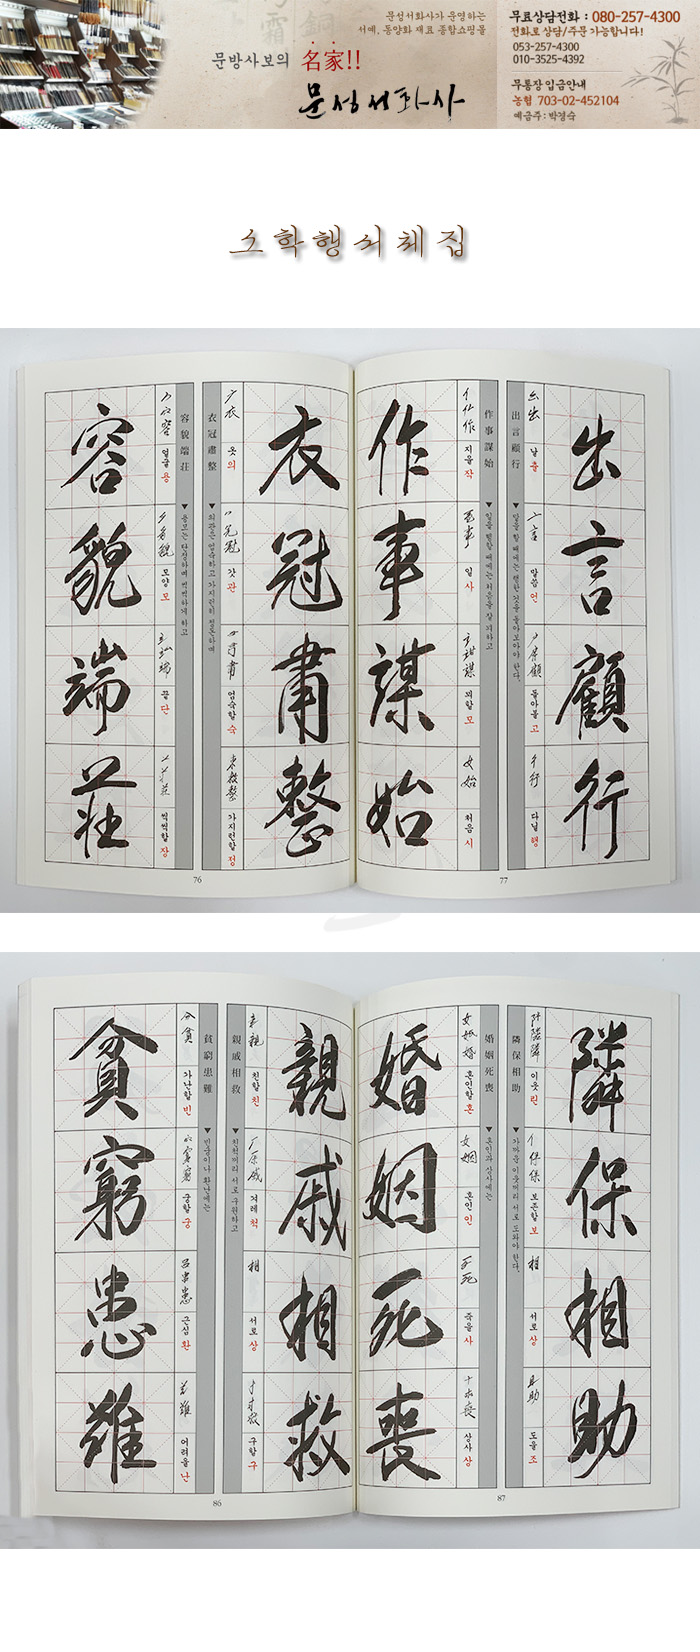 문성서화사가 운영하는
서예, 동양화 재료 종합쇼핑몰
문방사보의 名家!!
문성서화사
무료상담전화 : 080-257-4300
전화로 상담/주문 가능합니다!
053-257-4300
010-3525-4392
무통장 입금안내
농협 703-02-452104
예금주: 박경숙
소학행서체집
出言顧行
날 출
말씀 언
돌아볼 고
다닐 행
出言顧行 ▼ 말을 할 때에는 행할 것을 돌아보아야 한다.
作事謀始
지을 작
일 사
꾀할 모
처음 시
作事謀始 ▼ 일을 행할 때에는 처음을 잘 꾀하고
77
衣冠肅整
옷 의
갓 관
엄숙할 숙
가지런할 정
衣冠肅整 ▼ 의관은 엄숙하고 가지런히 정돈하며
容貌端莊
얼굴 용
모양 모
끝 단
씩씩할 장
容貌端莊 ▼ 용모는 단정하며 씩씩하게 하고
76
隣保相助
이웃 린
보존할 보
서로 상
도울 조
隣保相助 ▼ 가까운 이웃끼리 서로 도와야 한다.
婚姻死喪
혼인할 혼
혼인 인
죽을 사
상사 상
婚姻死喪 ▼ 혼인과 상사에는
87
親戚相救
친할 친
겨레 척
서로 상
구할 구
親戚相救 ▼ 친척끼리 서로 구원하고
貧窮患難
가난할 빈
궁할 궁
근심 환
어려울 난
貧窮患難 ▼ 빈궁이나 환난에는
86